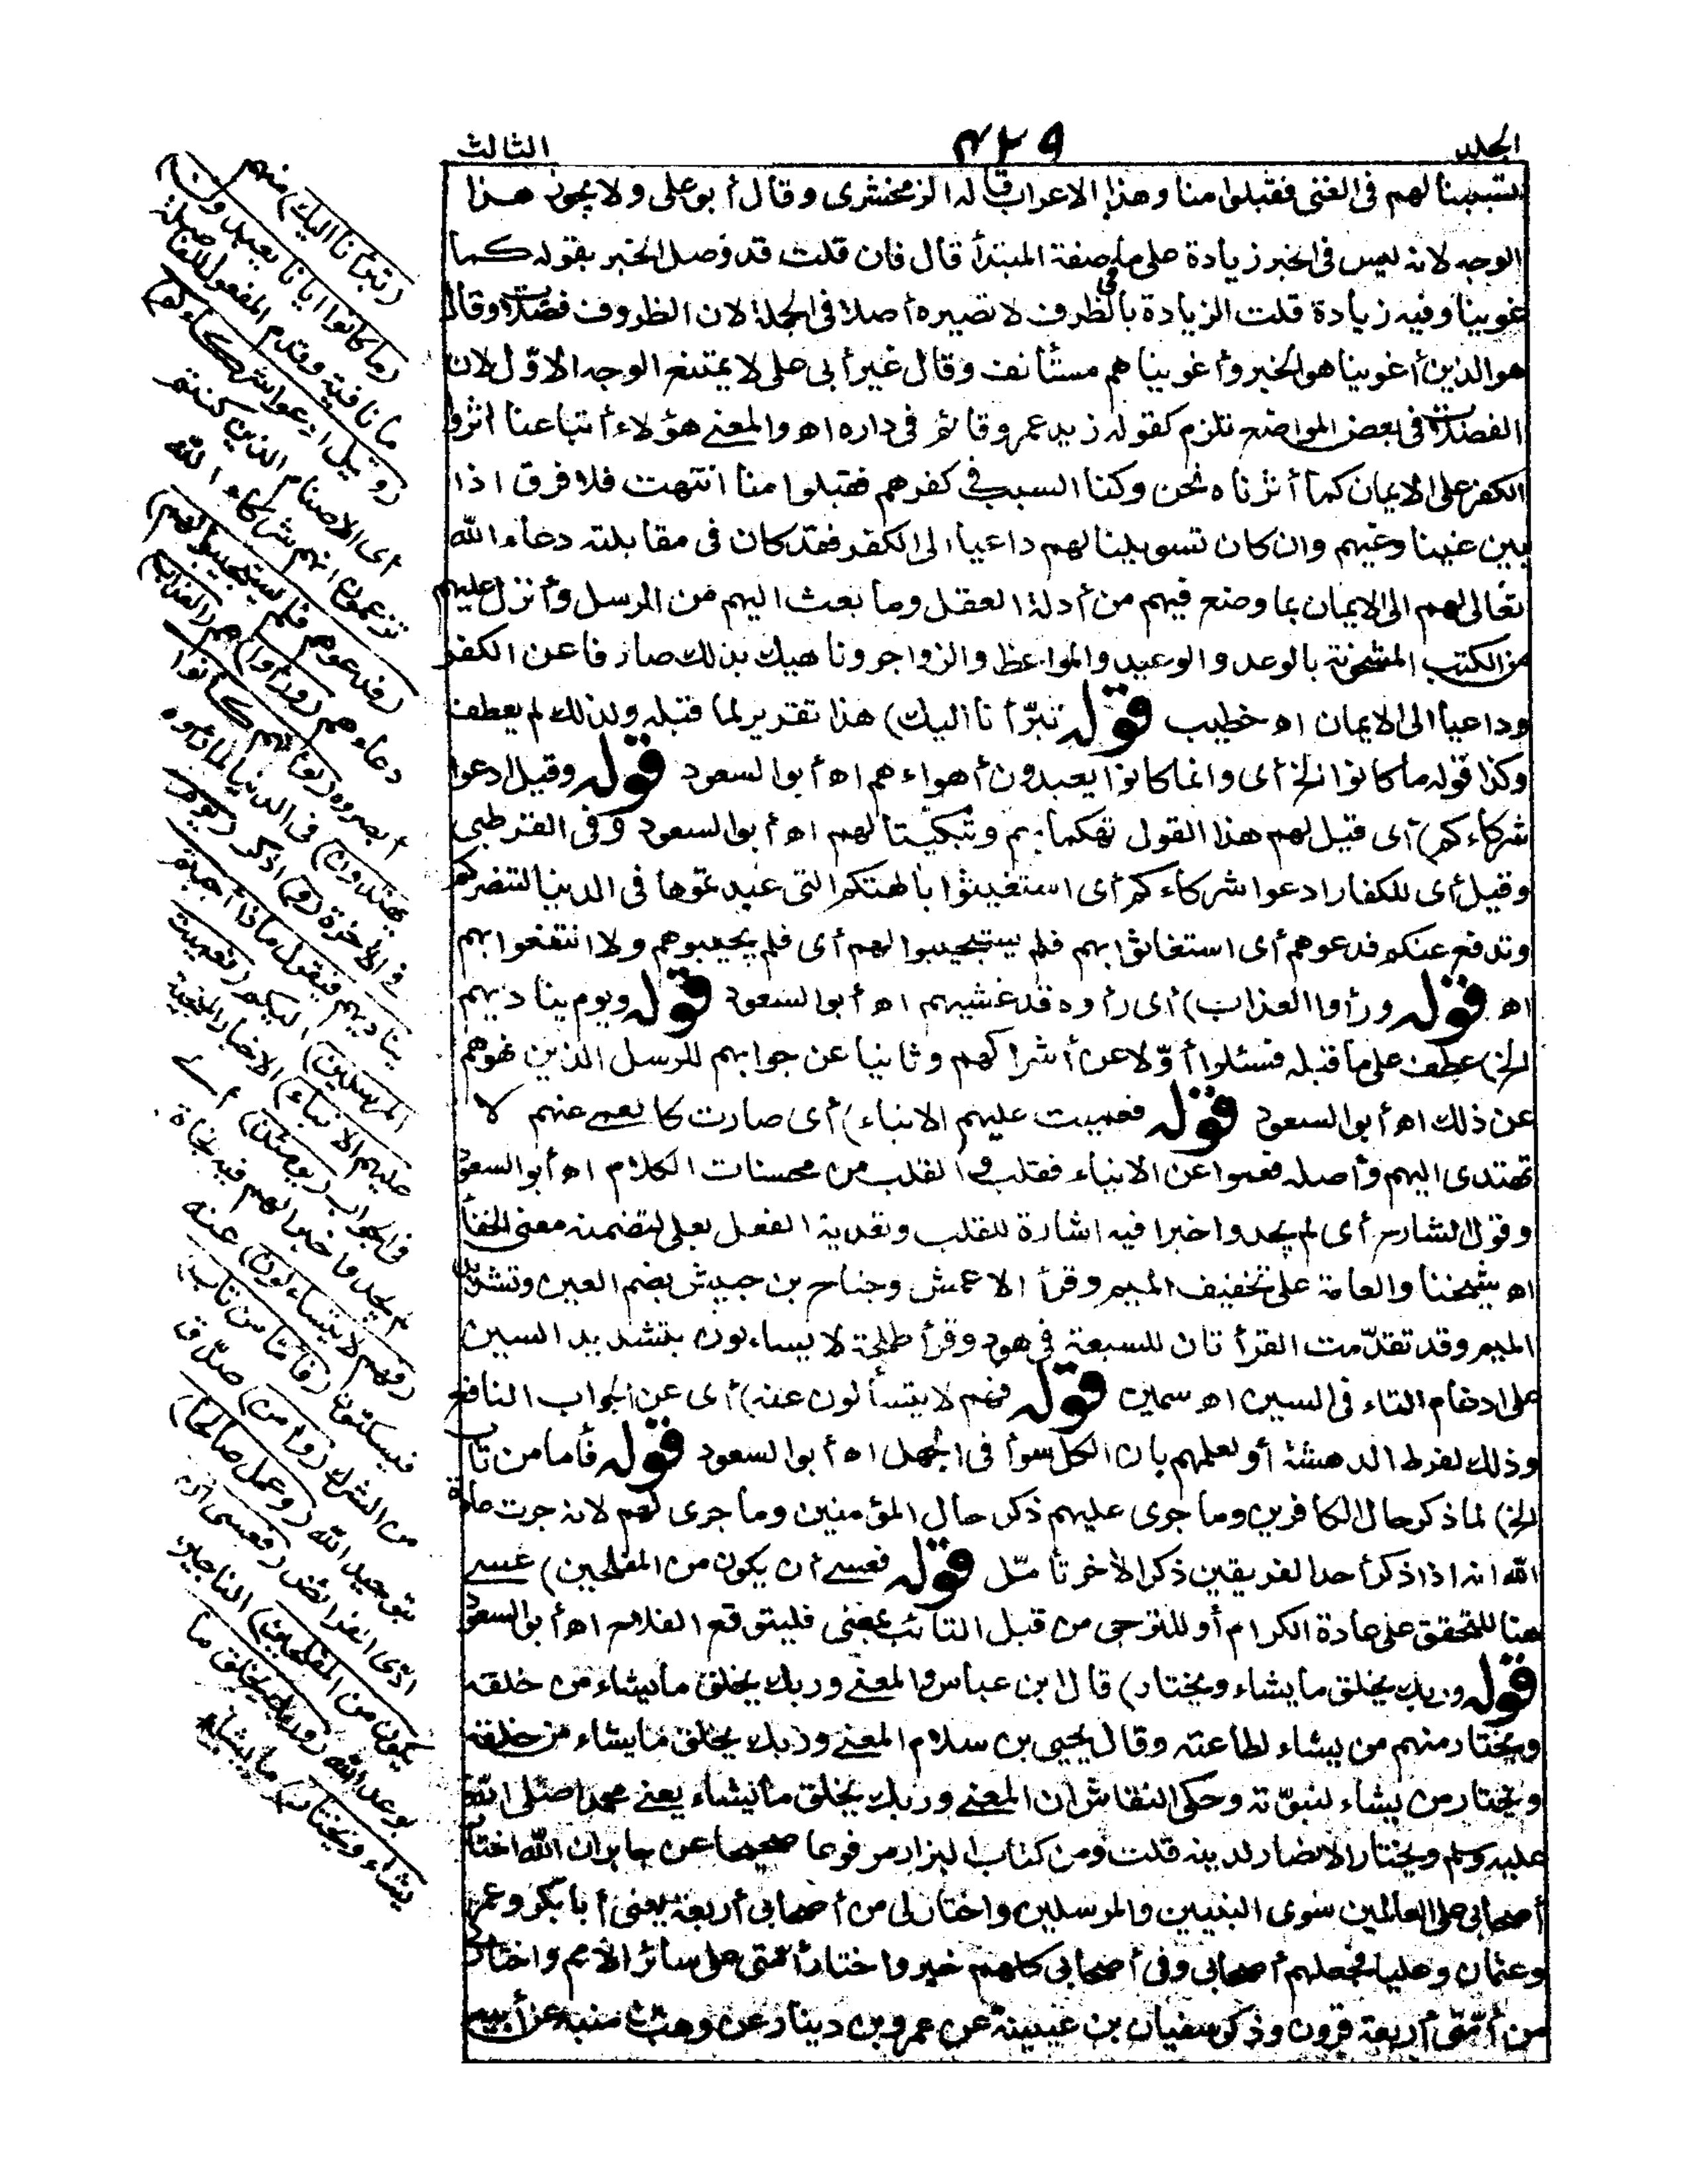 الجلد
٤٢٩
الثالث
لتسببنا لهم في الغي فقبلوا منا وهذا الاعراب قاله الزمخشرى وقال أبو على ولا يجوز هذا
الوجه لانه ليس في الخبر زيادة على ما في صفة المبتدأ قال فان قلت قد وصل الخبر بقوله كما
غوينا وفيه زيادة قلت الزيادة بالظرف لا تصيره أصلا في الجملة لان الظروف فضلات وقال
هو الذين أغوينا هو الخبر وأغويناهم مستأنف وقال غير أبى على لا يمتنع الوجه الاوّل لان
الفضلات في بعض المواضع تلزم كقوله زيد عمرو قائم في داره اه والمعنى هؤلاء أتباعنا آثروا
الكفر على الايمان كما آثرناه نحن وكنا السبب في كفرهم فقبلوا منا انتهت فلا فرق اذا
بين غينا وغيهم وان كان تسويلنا لهم داعيا الى الكفر فقد كان فى مقابلته دعاء الله
تعالى لهم الى الايمان بما وضع فيهم من أدلة العقل وما بعث اليهم من الرسل وأنزل عليهم
من الكتب المشحونة بالوعد والوعيد والمواعظ والزواجر وناهيك بذلك صارفا عن الكفر
وداعيا الى الايمان اه خطيب قوله تبرّأنا اليك) هذا تقرير لما قبله ولذلك لم يعطف
وكذا قوله ما كانوا الخ أى وانما كانوا يعبدون أهواءهم اه أبو السعود قوله وقيل ادعوا
شركاءكم) أى قيل لهم هذا القول تهكما بهم وتبكيتا لهم اه أبو السعود وفى القرطبى
وقيل أى للكفار ادعوا شركاءكم أى استغيثوا بآلهتكم التى عبدتموها فى الدنيا لتنصركم
وتدفع عنكم فدعوهم أى استغاثوا بهم فلم يستجيبوا لهم أى فلم يجيبوهم ولا انتفعوا بهم
اه قوله ورأوا العذاب) أى رأوه قد غشيهم اه أبو السعود قوله ويوم يناديهم
الخ) عطف على ما قبله فسئلوا أوّلا عن أشراكهم وثانيا عن جوابهم للرسل الذين نهوهم
عن ذلك اه أبو السعود قوله فعميت عليهم الانباء) أى صارت كالعمى عنهم لا
تهتدى اليهم وأصله فعموا عن الانباء فقلب والقلب من محسنات الكلام اه أبو السعود
وقول الشارح أى لم يجدوا خبرا فيه اشارة للقلب وتعدية الفعل بعلى لتضمنه معنى الخفأ
اه شيخنا والعامة على تخفيف الميم وقرأ الاعمش وجناح بن حبيش بضم العين وتشديد
الميم وقد تقدّمت القرأتان للسبعة في هود وقرأ طلحة لا يساءلون بتشديد السين
على ادغام التاء في السين اه سمين قوله فهم لا يتسألون عنه) أى عن الجواب النافع
وذلك لفرط الدهشة أو لعلمهم بان الكل سوأ فى الجهل اه أبو السعود قوله فأما من تاب
الخ) لما ذكر حال الكافرين وما جرى عليهم ذكر حال المؤمنين وما جرى لهم لانه جرت عادة
الله انه اذا ذكر أحد الفريقين ذكر الآخر تأمّل قوله فعسى أن يكون من المفلحين) عسى
هنا للتحقق على عادة الكرام أو للترجى من قبل التائب بمعنى فليتوقع الفلاح اه أبو السعود
قوله وربك يخلق ما يشاء ويختار) قال ابن عباس والمعنى وربك يخلق ما يشاء من خلقه
ويختار منهم من يشاء لطاعته وقال يحيى بن سلام المعنى وربك يخلق ما يشاء من خلقه
ويختار من يشاء لنبوّته وحكى النقاش ان المعنى وربك يخلق ما يشاء يعنى محمدا صلى الله
عليه وسلم ويختار الانصار لدينه قلت ومن كتاب البزار مرفوعا صحيحا عن جابر ان الله اختار
أصحابى على العالمين سوى النبيين والمرسلين واختار لى من أصحابى أربعة يعنى أبا بكر وعمر
وعثمان وعليا فجعلهم أصحابى وفى أصحابى كلهم خير واختار أمّتى على سائر الامم واختار لى
من أمّتى أربعة قرون وذكر سفيان بن عيينة عن عمرو بن دينار عن وهب بن منبه عن أبيه
(تبرأنا اليك) منهم
(ما كانوا ايانا يعبدون)
ما نافية وقدم المفعول للفاصلة
(وقيل ادعوا شركاءكم)
أى الاصنام الذين كنتم
تزعمون انهم شركاء الله
(فدعوهم فلم يستجيبوا لهم)
دعاءهم (ورأوا) هم (العذاب)
أبصروه (لو أنهم كانوا
يهتدون) فى الدنيا لما رأوه
فى الآخرة (و) اذكر (يوم
يناديهم فيقول ماذا أجبتم
المرسلين) اليكم (فعميت
عليهم الانباء) الاخبار المنجية
فى الجواب (يومئذ) أى
لم يجدوا خبرا لهم فيه نجاة
(فهم لا يتساءلون) عنه
فيسكتون (فأما من تاب)
من الشرك (وآمن) صدّق
بتوحيد الله (وعمل صالحا)
ادّى الفرائض (فعسى أن
يكون من المفلحين) الناجين
بوعد الله (وربك يخلق ما
يشاء ويختار) ما يشاء